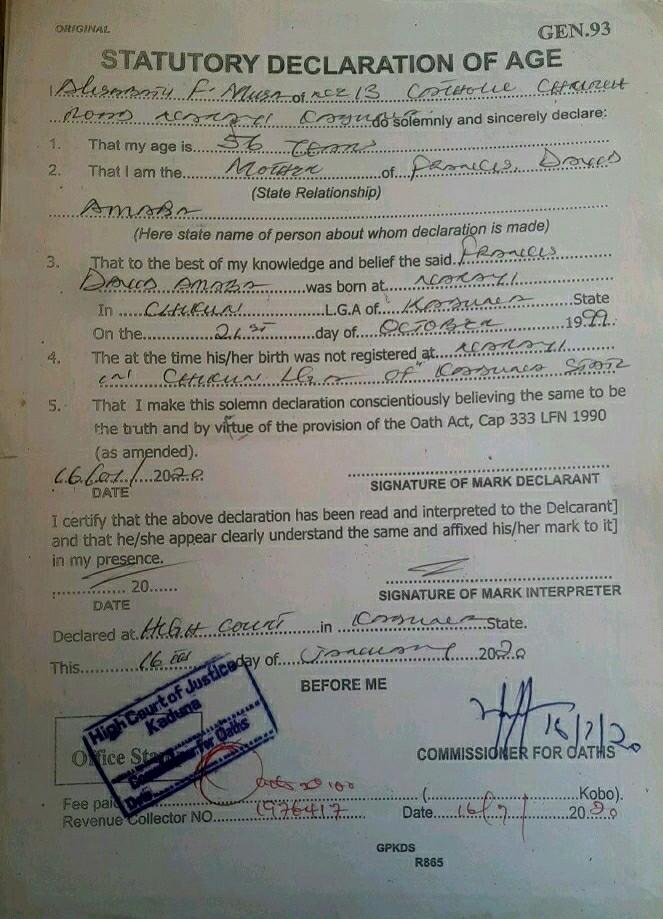 ORIGINAL
GEN.93
STATUTORY DECLARATION OF AGE
I F. Musa of 13 Catholic Church
Road Narayi Kaduna do solemnly and sincerely declare:
1. That my age is 56 Years
2. That I am the Mother of Francis, David
(State Relationship)
Amaba
(Here state name of person about whom declaration is made)
3. That to the best of my knowledge and belief the said Francis
David Amaba was born at Narayi
In Chikun L.G.A of Kaduna State
On the 21st day of October 1999.
4. The at the time his/her birth was not registered at Narayi
in Chikun LGA of Kaduna State
5. That I make this solemn declaration conscientiously believing the same to be
the truth and by virtue of the provision of the Oath Act, Cap 333 LFN 1990
(as amended).
16/01/2020
DATE
SIGNATURE OF MARK DECLARANT
I certify that the above declaration has been read and interpreted to the Delcarant]
and that he/she appear clearly understand the same and affixed his/her mark to it]
in my presence.
20
DATE
SIGNATURE OF MARK INTERPRETER
Declared at High Court in Kaduna State.
This 16th day of January 2020
BEFORE ME
High Court of Justice
Kaduna
Commissioner for Oaths
Date
Office Sta
16/1/20
COMMISSIONER FOR OATHS
Fee paid 100 ( Kobo).
Revenue Collector NO. 1976417 Date 16/1/2020
GPKDS
R865